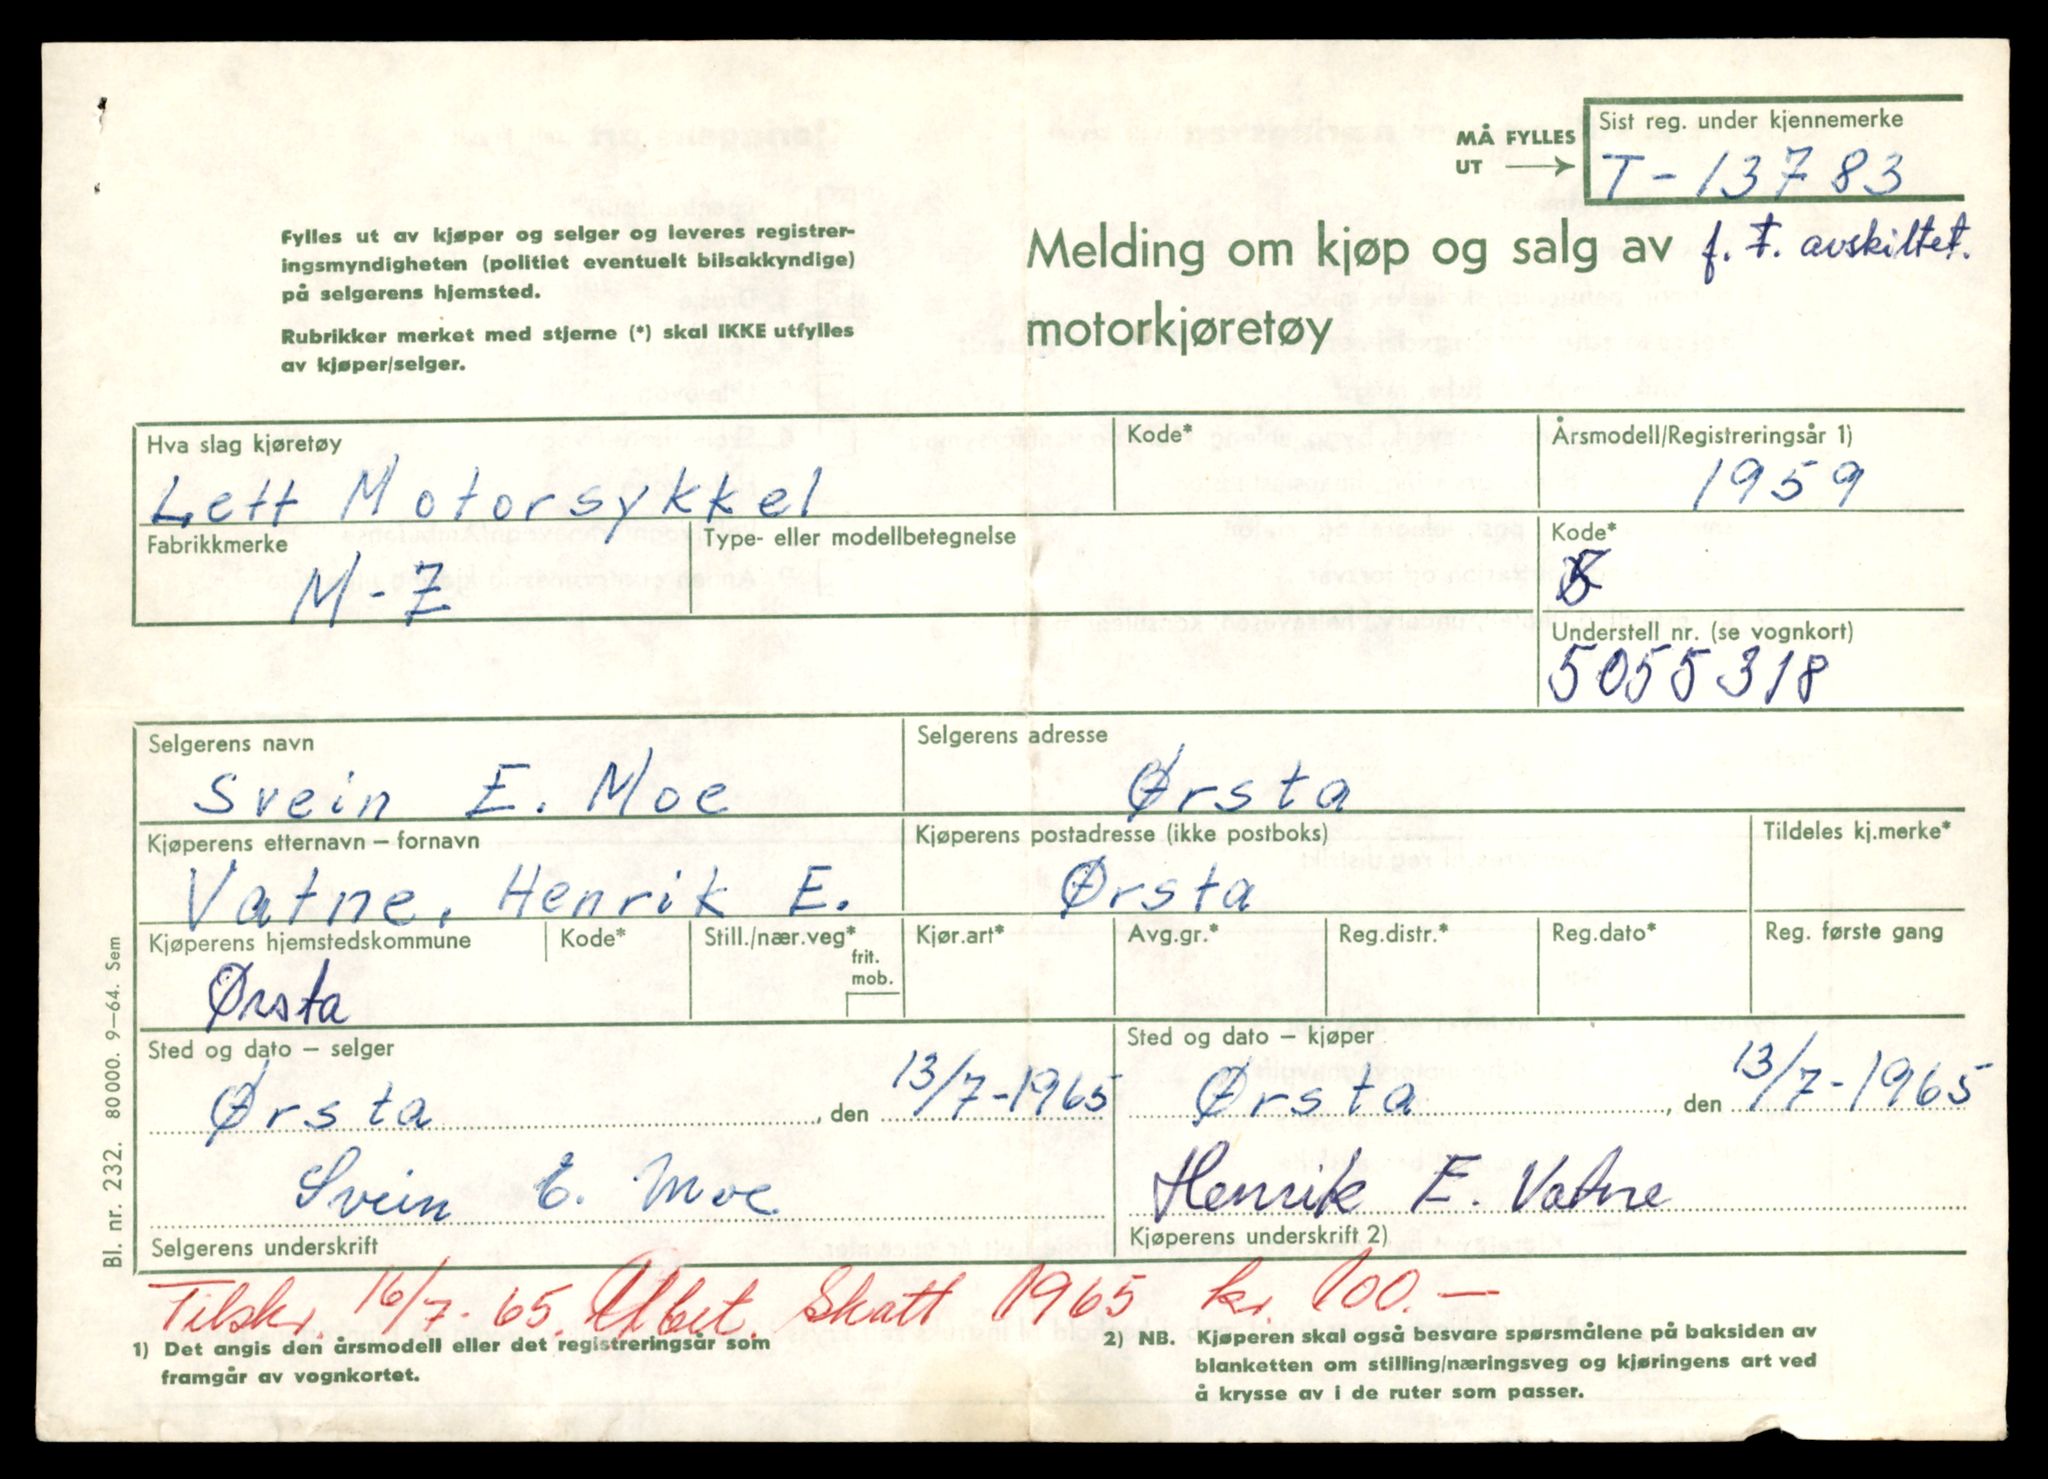 MÅ FYLLES UT →
Sist reg. under kjennemerke
T-13783
Fylles ut av kjøper og selger og leveres registrer-
ingsmyndigheten (politiet eventuelt bilsakkyndige)
på selgerens hjemsted.
Rubrikker merket med stjerne (*) skal IKKE utfylles
av kjøper/selger.
Melding om kjøp og salg av
motorkjøretøy
f. T. avskiltet.
Hva slag kjøretøy
Lett Motorsykkel
Kode*
Årsmodell/Registreringsår 1)
1959
Fabrikkmerke
M-Z
Type- eller modellbetegnelse
Kode*
Understell nr. (se vognkort)
5055318
Selgerens navn
Svein E. Moe
Selgerens adresse
Ørsta
Kjøperens etternavn – fornavn
Vatne, Henrik E.
Kjøperens postadresse (ikke postboks)
Ørsta
Tildeles kj.merke*
Kjøperens hjemstedskommune
Ørsta
Kode*
Still./nær.veg*
frit.
mob.
Kjør.art*
Avg.gr.*
Reg.distr.*
Reg.dato*
Reg. første gang
Sted og dato – selger
Ørsta, den 13/7-1965
Svein E. Moe
Selgerens underskrift
Sted og dato – kjøper
Ørsta, den 13/7-1965
Henrik E. Vatne
Kjøperens underskrift 2)
Tilskr. 16/7-65. Afbet. Skatt 1965 kr. 100.—
1) Det angis den årsmodell eller det registreringsår som
framgår av vognkortet.
2) NB. Kjøperen skal også besvare spørsmålene på baksiden av
blanketten om stilling/næringsveg og kjøringens art ved
å krysse av i de ruter som passer.
Bl. nr. 232. 80000. 9–64. Sem